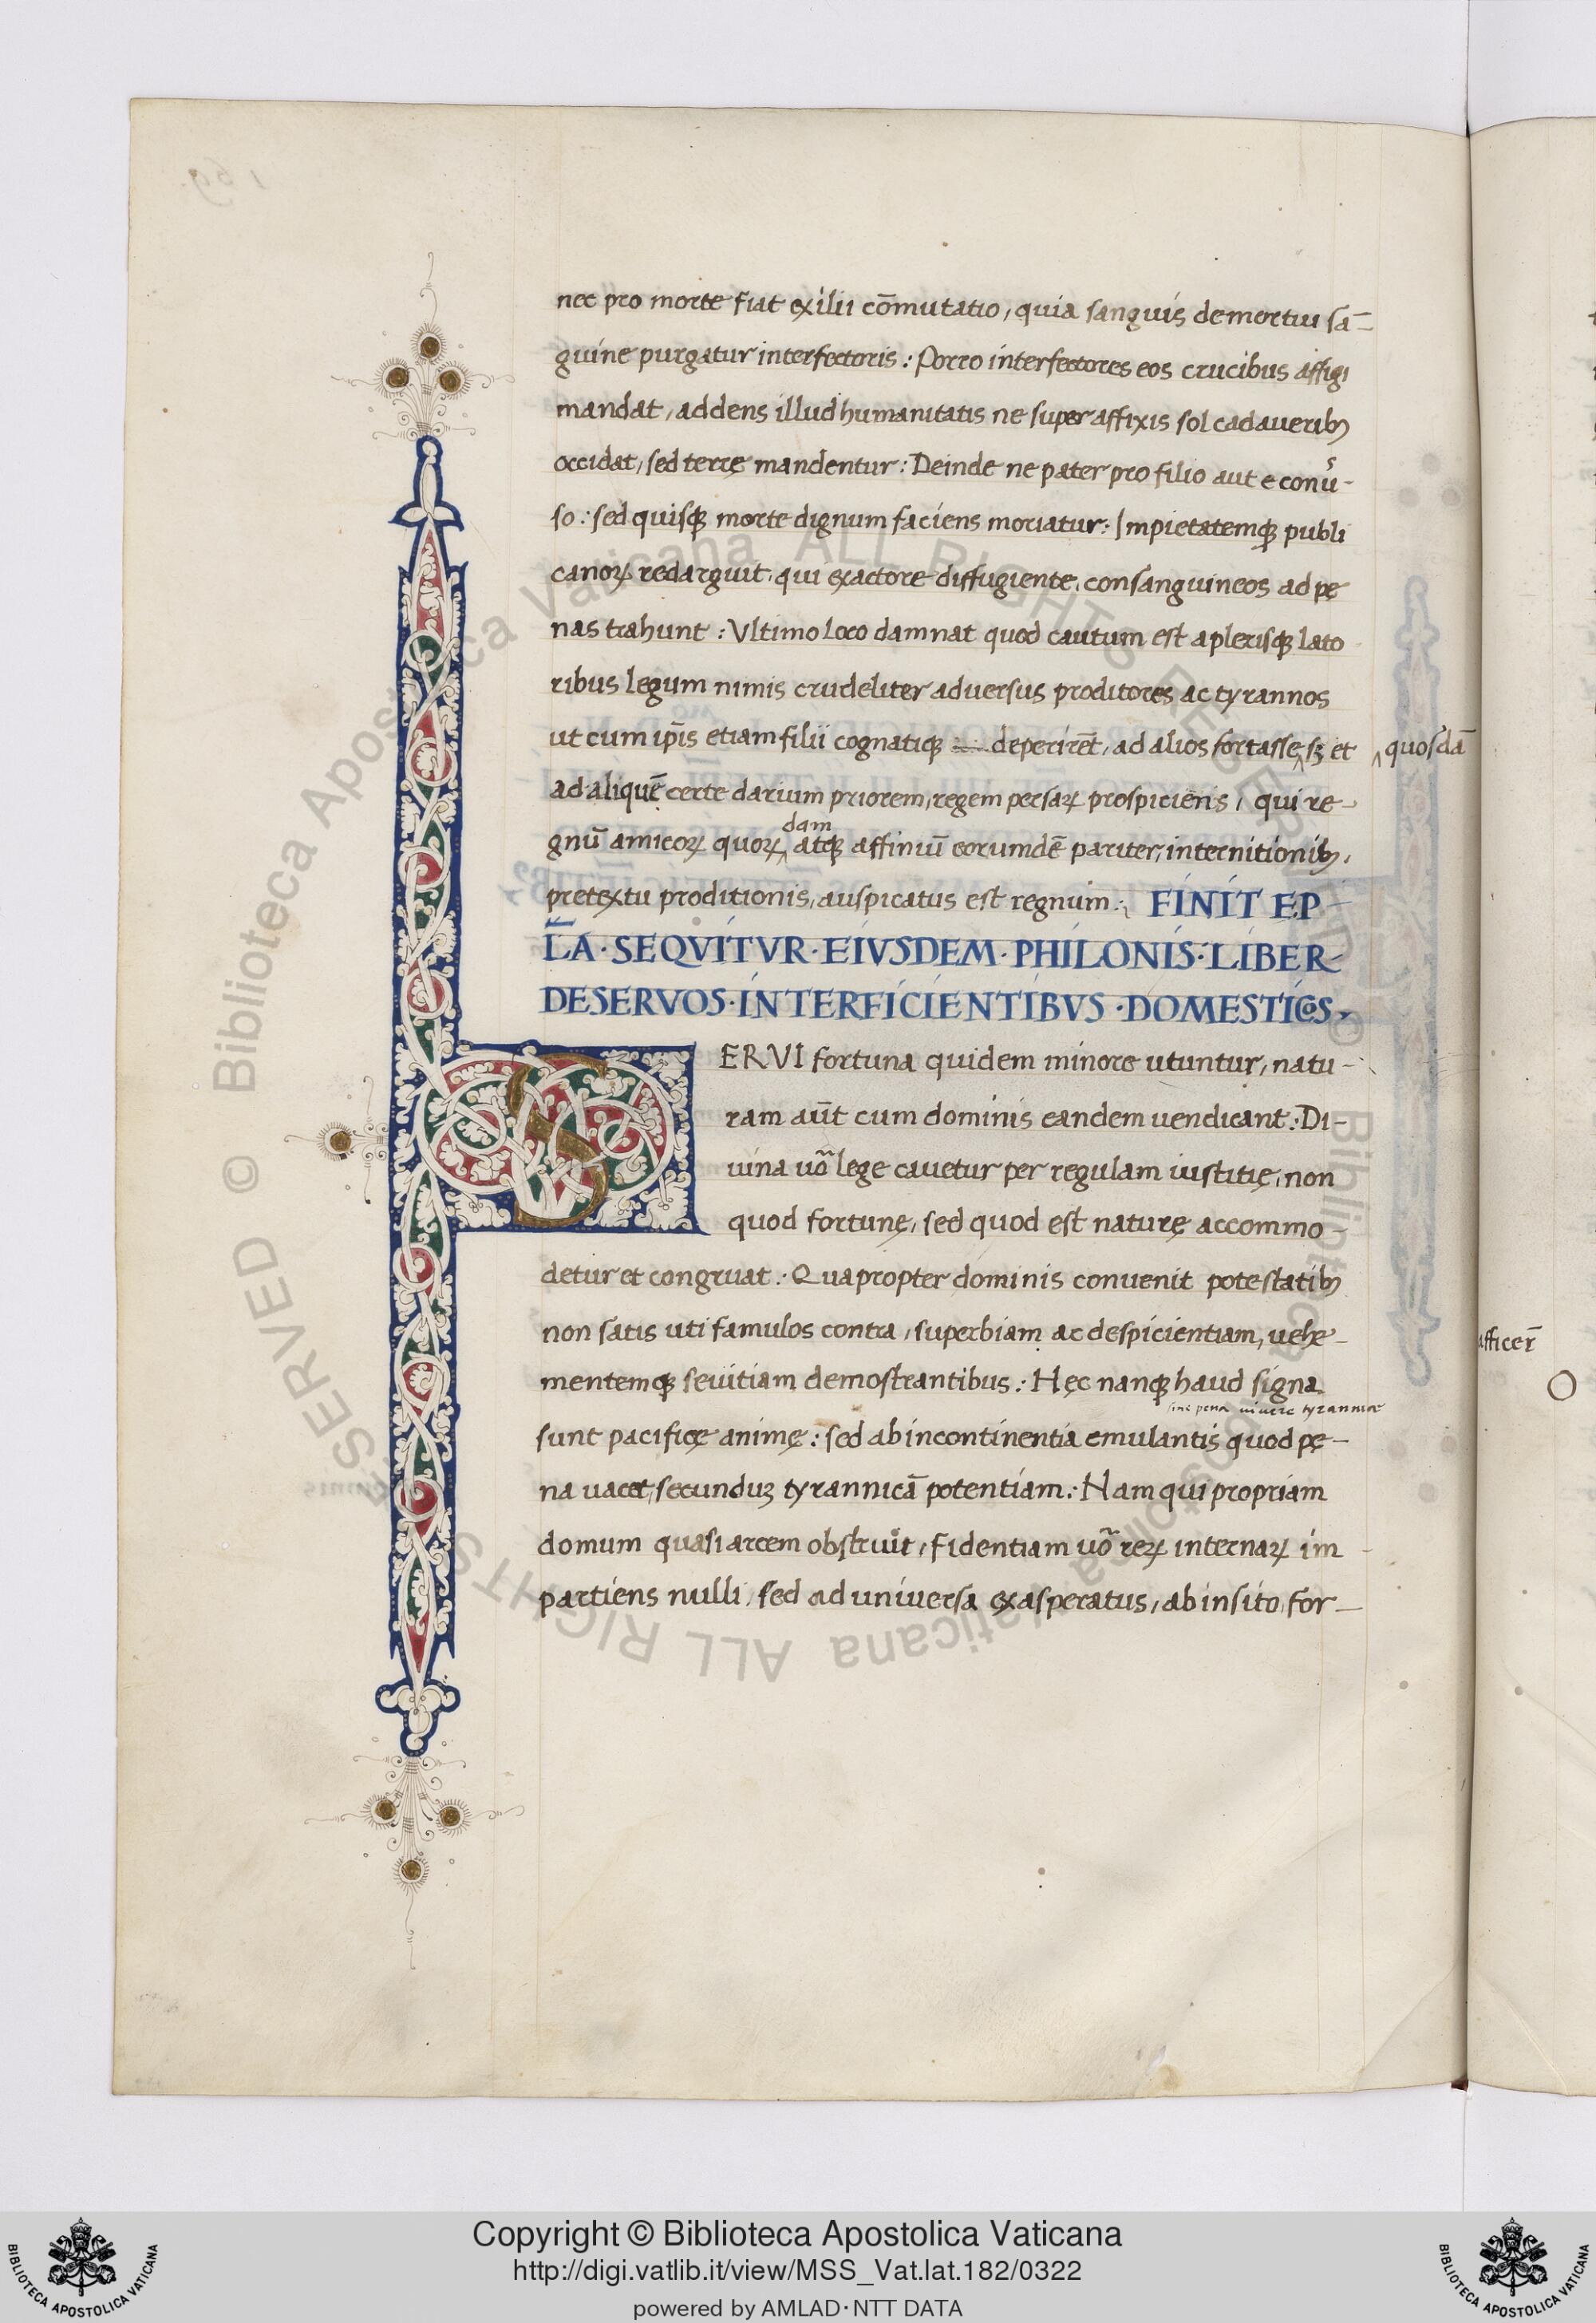 nec pro morte fiat exilii cōmutatio, quia sanguis demortui sā-
guine purgatur interfectoris: Porro interfectores eos crucibus affigi
mandat, addens illud humanitatis ne super affixis sol cadaueribꝫ
occidat, sed terrę mandentur: Deinde ne pater pro filio aut e conu͛-
so: sed quisqꝫ morte dignum faciens moriatur: Impietatemqꝫ publi
canoꝝ redarguit, qui exactore diffugiente, consanguineos ad pę
nas trahunt: Vltimo loco damnat quod cautum est a plerisqꝫ lato
ribus legum nimis crudeliter aduersus proditores ac tyrannos
ut cum ip̄is etiam filii cognatiqꝫ deperirēt, ad alios fortasse ‸ sꝫ et ‸ quosdā
ad aliquē certe darium priorem, regem persaꝝ prospiciens, qui re-
gnū amicoꝝ quoꝝ‸dam atqꝫ affiniū eorumdē pariter, internitionibꝫ,
pretextu proditionis, auspicatus est regnum: FINIT EP
L̄A · SEQVITVR · EIVSDEM · PHILONIS · LIBER
DE SERVOS · INTERFICIENTIBVS · DOMESTICOS
SERVI fortuna quidem minore utuntur, natu-
ram aūt cum dominis eandem uendicant: Di-
uina uō lege cauetur per regulam iustitię, non
quod fortunę, sed quod est naturę accommo-
detur et congruat: Quapropter dominis conuenit potestatibꝫ
non satis uti famulos contra, superbiam ac despicientiam, uehe-
mentemqꝫ seuitiam demostrantibus: Hęc nanqꝫ haud signa
sine pena uiuere tyrannice
sunt pacificę animę: sed ab incontinentia emulantis quod pę-
na uacet, secunduꝫ tyrannicā potentiam: Nam qui propriam
domum quasi arcem obstruit, fidentiam uō reꝝ internaꝝ im
partiens nulli, sed ad uniuersa exasperatus, ab insito for-
afficer̄
Copyright © Biblioteca Apostolica Vaticana
http://digi.vatlib.it/view/MSS_Vat.lat.182/0322
powered by AMLAD·NTT DATA
BIBLIOTECA APOSTOLICA VATICANA
BIBLIOTECA APOSTOLICA VATICANA
© Biblioteca Apostolica Vaticana ALL RIGHTS RESERVED © Biblioteca Apostolica Vaticana ALL RIGHTS RESERVED